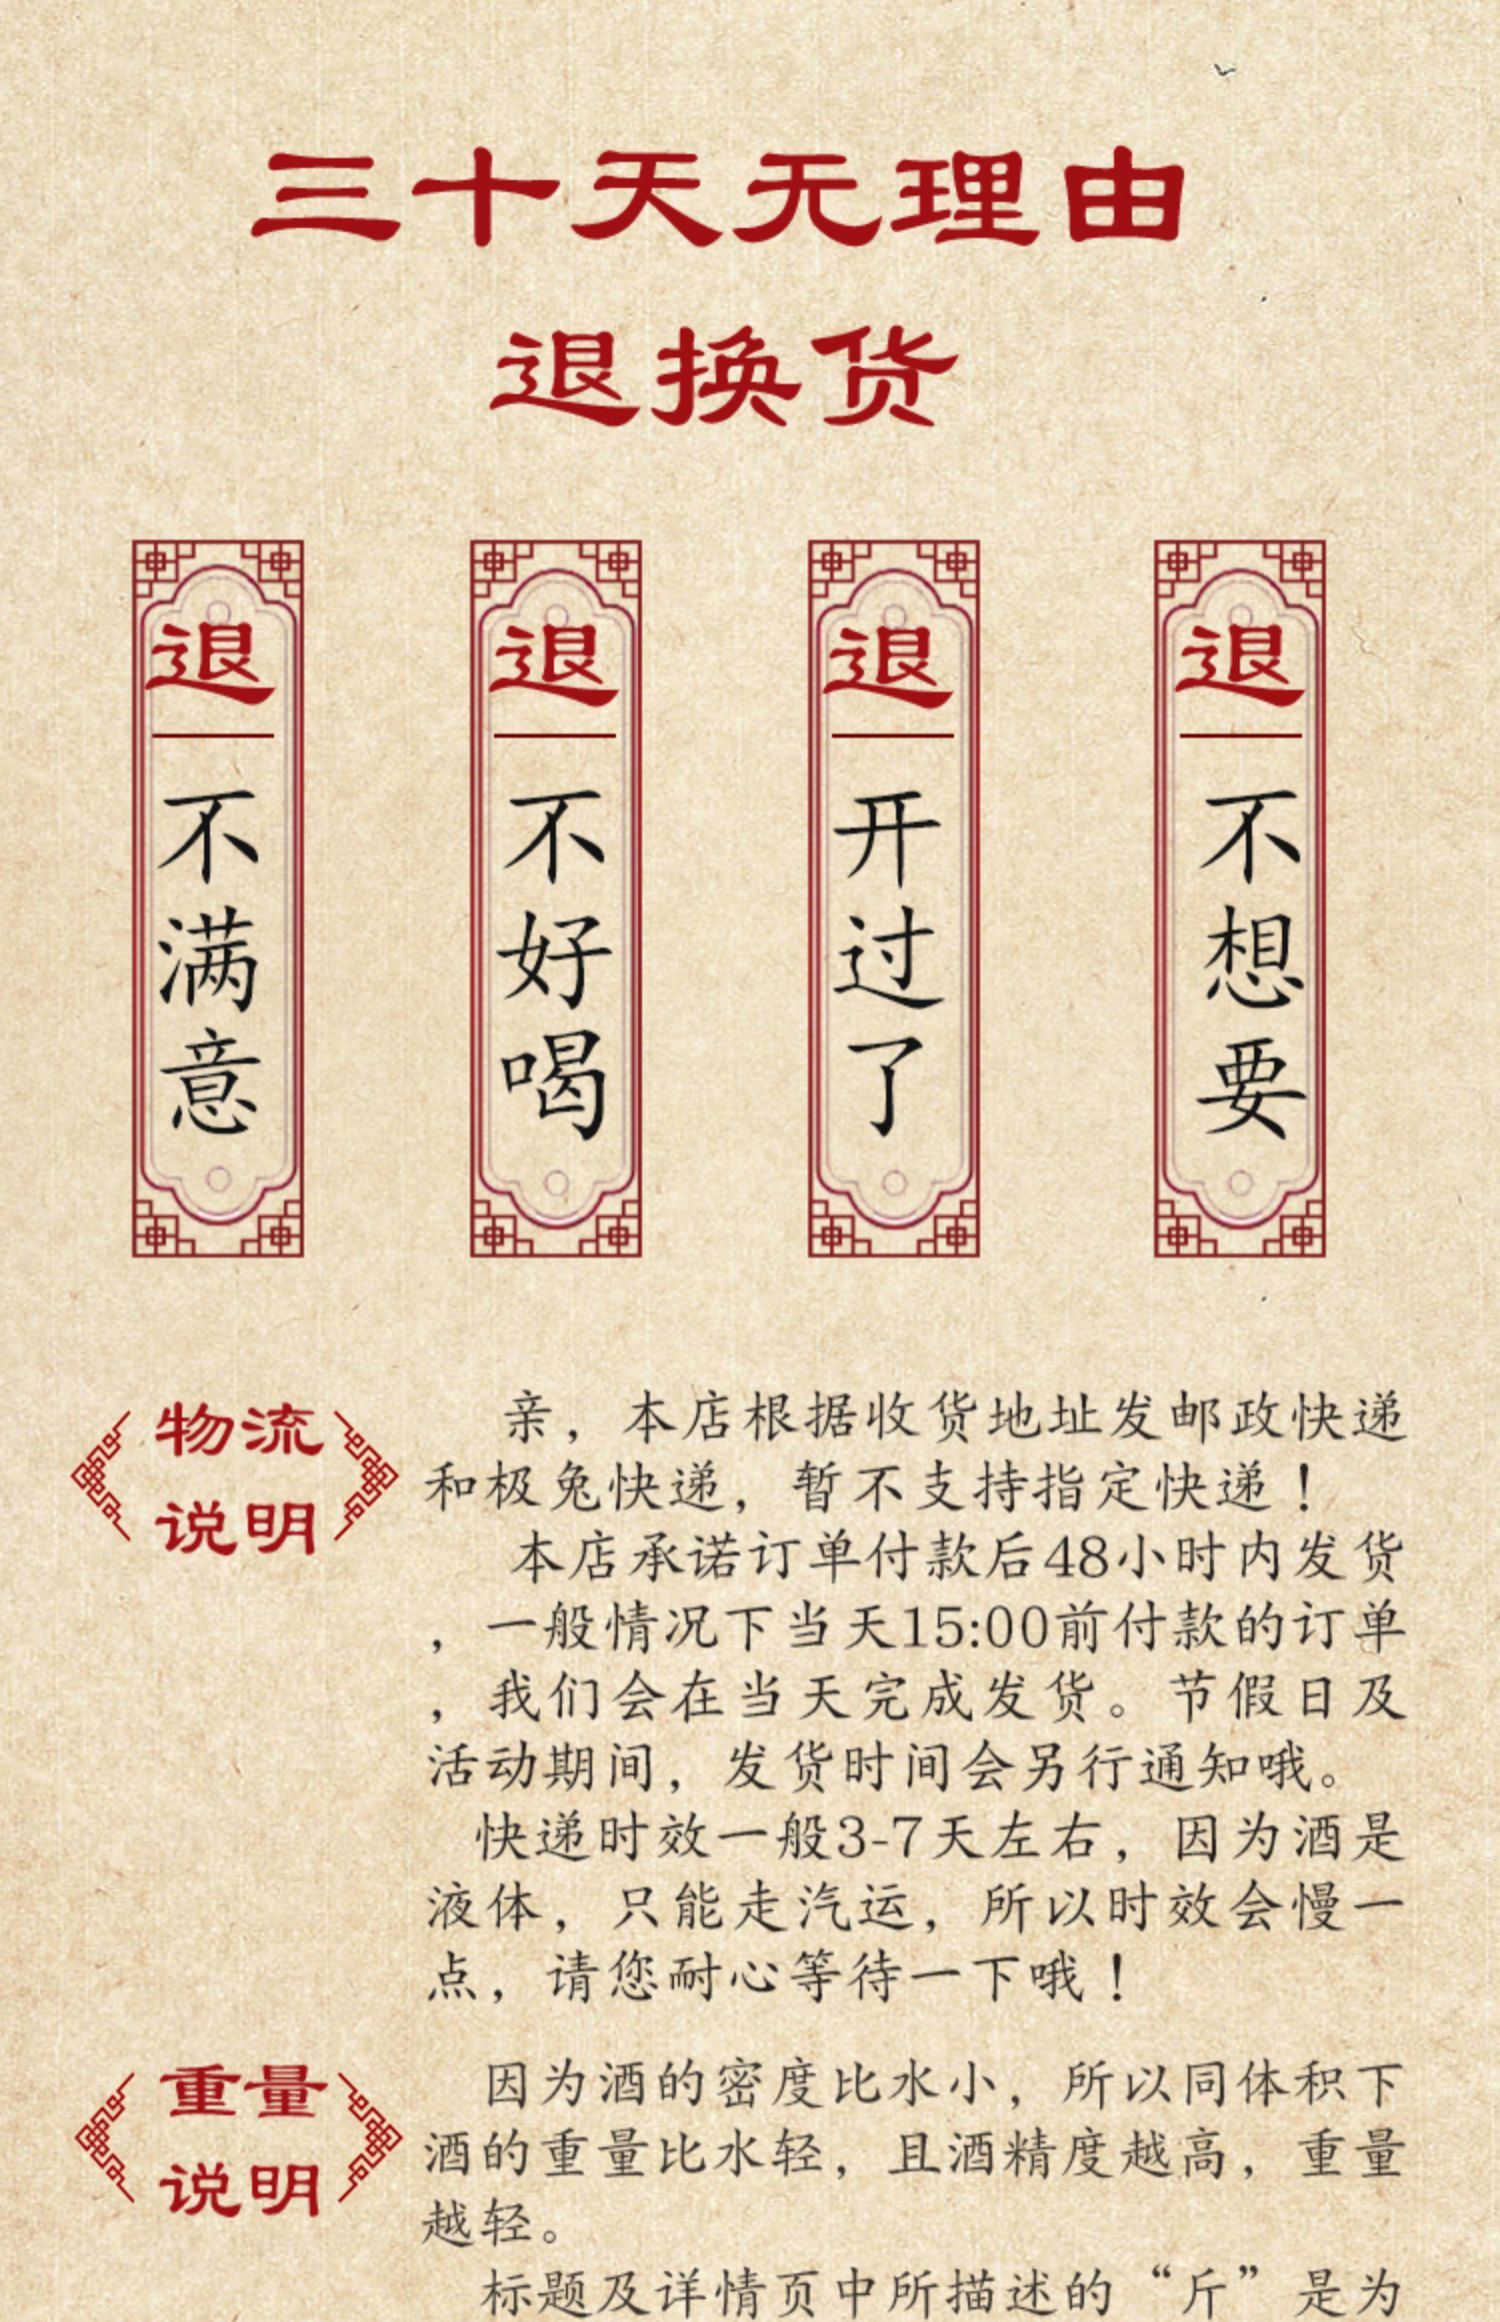 三十天无理由
退换货
退
不满意
退
不好喝
退
开过了
退
不想要
物流
说明
亲，本店根据收货地址发邮政快递
和极兔快递，暂不支持指定快递！
本店承诺订单付款后48小时内发货
，一般情况下当天15:00前付款的订单
，我们会在当天完成发货。节假日及
活动期间，发货时间会另行通知哦。
快递时效一般3-7天左右，因为酒是
液体，只能走汽运，所以时效会慢一
点，请您耐心等待一下哦！
重量
说明
因为酒的密度比水小，所以同体积下
酒的重量比水轻，且酒精度越高，重量
越轻。
标题及详情页中所描述的“斤”是为